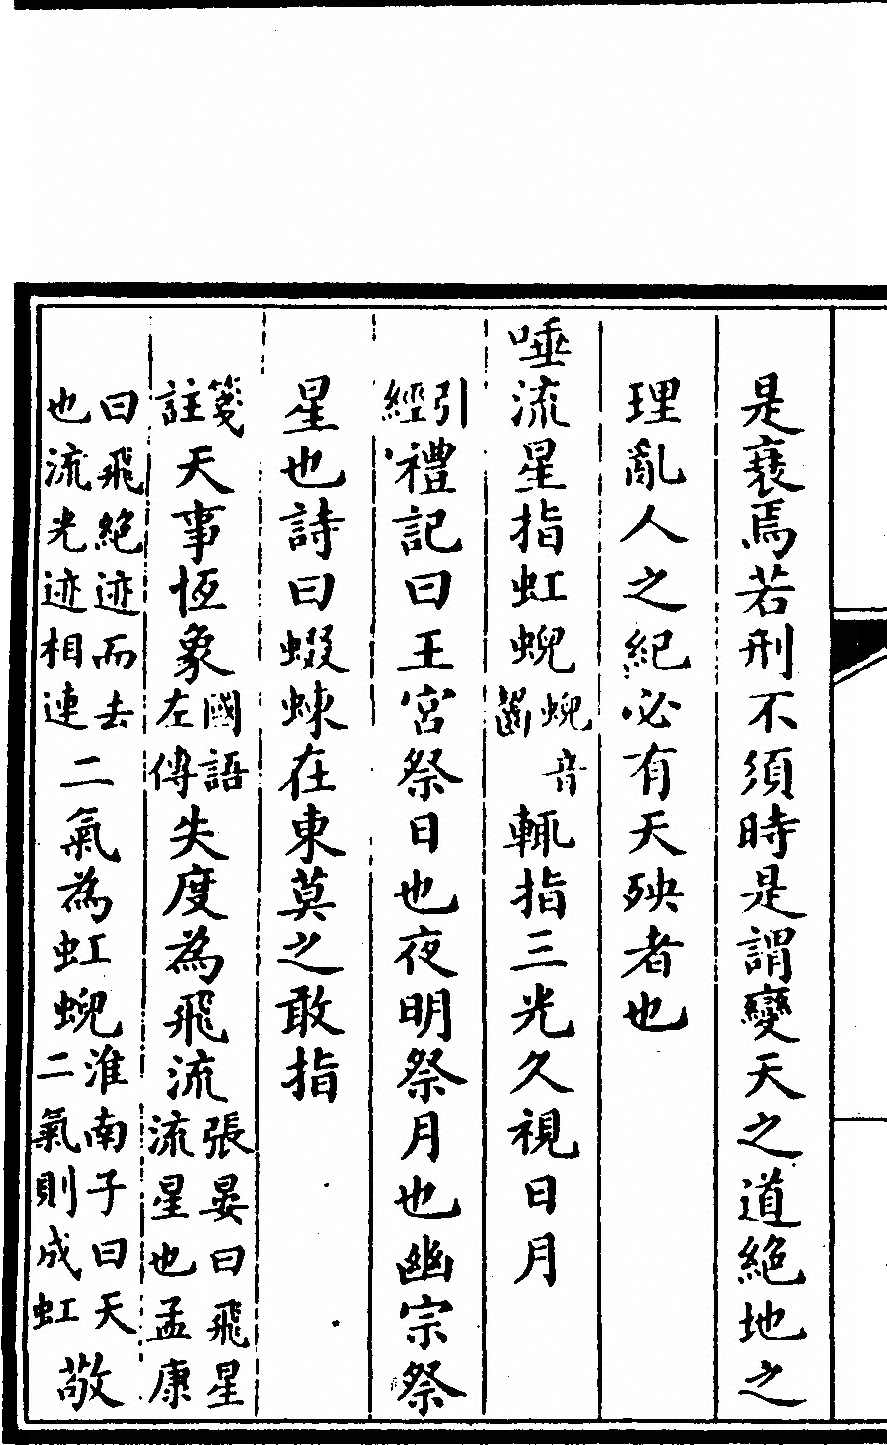 是衰焉若刑不須時是謂變天之道絶地之
理亂人之紀必有天殃者也
唾流星指虹蜺蜺音齧輒指三光久視日月
引經禮記曰王宮祭日也夜明祭月也幽宗祭
星也詩曰蝃蝀在東莫之敢指
箋註天事恆象國語左傳失度為飛流張晏曰飛星流星也孟康
曰飛絶迹而去也流光迹相連二氣為虹蜺淮南子曰天二氣則成虹敬